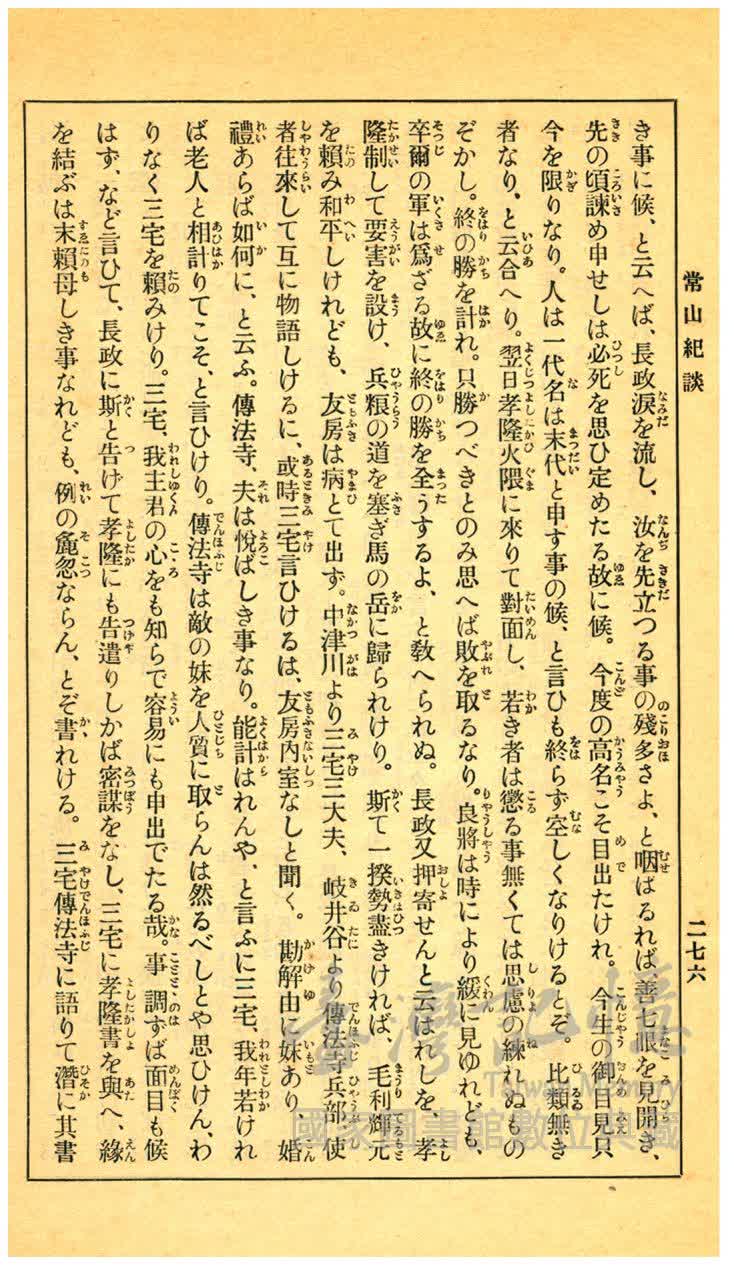 常山紀談
二七六
き事に候、と云へば、長政涙を流し、汝を先立つる事の殘多さよ、と咽ばるれば、善七眼を見開き、
先の頃諫め申せしは必死を思ひ定めたる故に候。今度の高名こそ目出たけれ。今生の御目見只
今を限りなり。人は一代名は末代と申す事の候、と言ひも終らず空しくなりけるとぞ。比類無き
者なり、と云合へり。翌日孝隆火隈に來りて對面し、若き者は懲る事無くては思慮の練れぬもの
ぞかし。終の勝を計れ。只勝つべきとのみ思へば敗を取るなり。良將は時により緩に見ゆれども、
卒爾の軍は爲ざる故に終の勝を全うするよ、と敎へられぬ。長政又押寄せんと云はれしを、孝
隆制して要害を設け、兵粮の道を塞ぎ馬の岳に歸られけり。斯て一揆勢盡きければ、毛利輝元
を賴み和平しけれども、友房は病とて出ず。中津川より三宅三大夫、岐井谷より傳法寺兵部、使
者往來して互に物語しけるに、或時三宅言ひけるは、友房内室なしと聞く。勘解由に妹あり、婚
禮あらば如何に、と云ふ。傳法寺、夫は悅ばしき事なり。能計はれんや、と言ふに三宅、我年若けれ
ば老人と相計りてこそ、と言ひけり。傳法寺は敵の妹を人質に取らんは然るべしとや思ひけん、わ
りなく三宅を賴みけり。三宅、我主君の心をも知らで容易にも申出でたる哉。事調ずば面目も候
はず、など言ひて、長政に斯と告げて孝隆にも告遣りしかば密謀をなし、三宅に孝隆書を與へ、緣
を結ぶは末賴母しき事なれども、例の麁忽ならん、とぞ書れける。三宅傳法寺に語りて潛に其書
臺灣記憶
Taiwan Memory
國家圖書館數位典藏